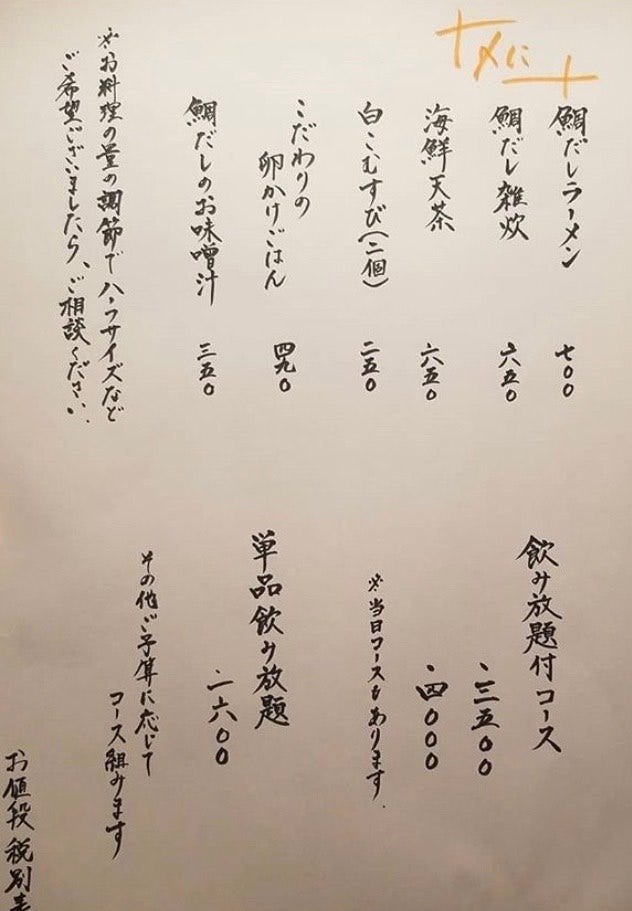 〆に
鯛だしラーメン 七〇〇
鯛だし雑炊 六五〇
海鮮天茶 六五〇
白こむすび(二個) 二五〇
こだわりの
卵かけごはん 四九〇
鯛だしのお味噌汁 三五〇
※お料理の量の調節でハーフサイズなど
ご希望ございましたら、ご相談ください。
飲み放題付コース
・三五〇〇
・四〇〇〇
※当日コースもあります.
単品飲み放題
・一六〇〇
その他ご予算に応じて
コース組みます
お値段税別